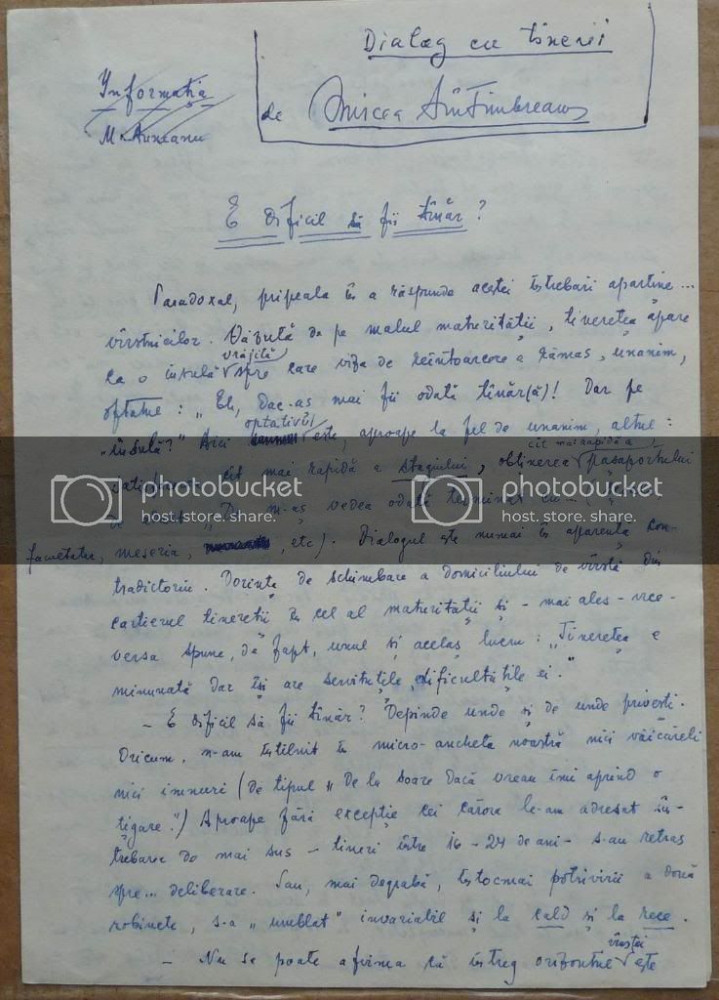 Dialog cu tinerii
Informația
de Mircea Sîntimbreanu
M. Auneanu
E dificil să fii tînăr?
Paradoxal, pripeala în a răspunde acestei întrebări aparține...
vîrstnicilor. Văzută de pe malul maturității, tinerețea apare
vrăjită
ca o insulă spre care viza de reîntoarcere a rămas, unanim,
optativ: „Eh, dac-aș mai fi odată tînăr(ă)! Dar pe
optativul
„insulă?" Aici este, aproape la fel de unanim, altul:
cît mai rapidă a
cît mai rapidă a stagiului, obținerea pașaportului
photobucket photobucket
host. store. share. host. store. share.
de m-aș vedea odată terminat cu
facultatea, meseria, , etc). Dialogul este numai în aparență con-
tradictoriu. Dorința de schimbare a domiciliului de vîrstă din
cartierul tinereții în cel al maturității și - mai ales - vice-
versa spune, de fapt, unul și același lucru: „Tinerețea e
minunată dar își are servituțile, dificultățile ei."
- E dificil să fii tînăr? Depinde unde și de unde privești.
Oricum, n-am întîlnit în micro-ancheta noastră nici văicăreli
nici imnuri (de tipul „De la soare dacă vreau îmi aprind o
țigare".) Aproape fără excepție cei cărora le-am adresat în-
trebarea de mai sus - tineri între 16-24 de ani - s-au retras
spre... deliberare. Sau, mai degrabă, întocmai potrivirii a două
robinete, s-a „umblat" invariabil și la cald și la rece.
vîrstei
- Nu se poate afirma că întreg orizontul este